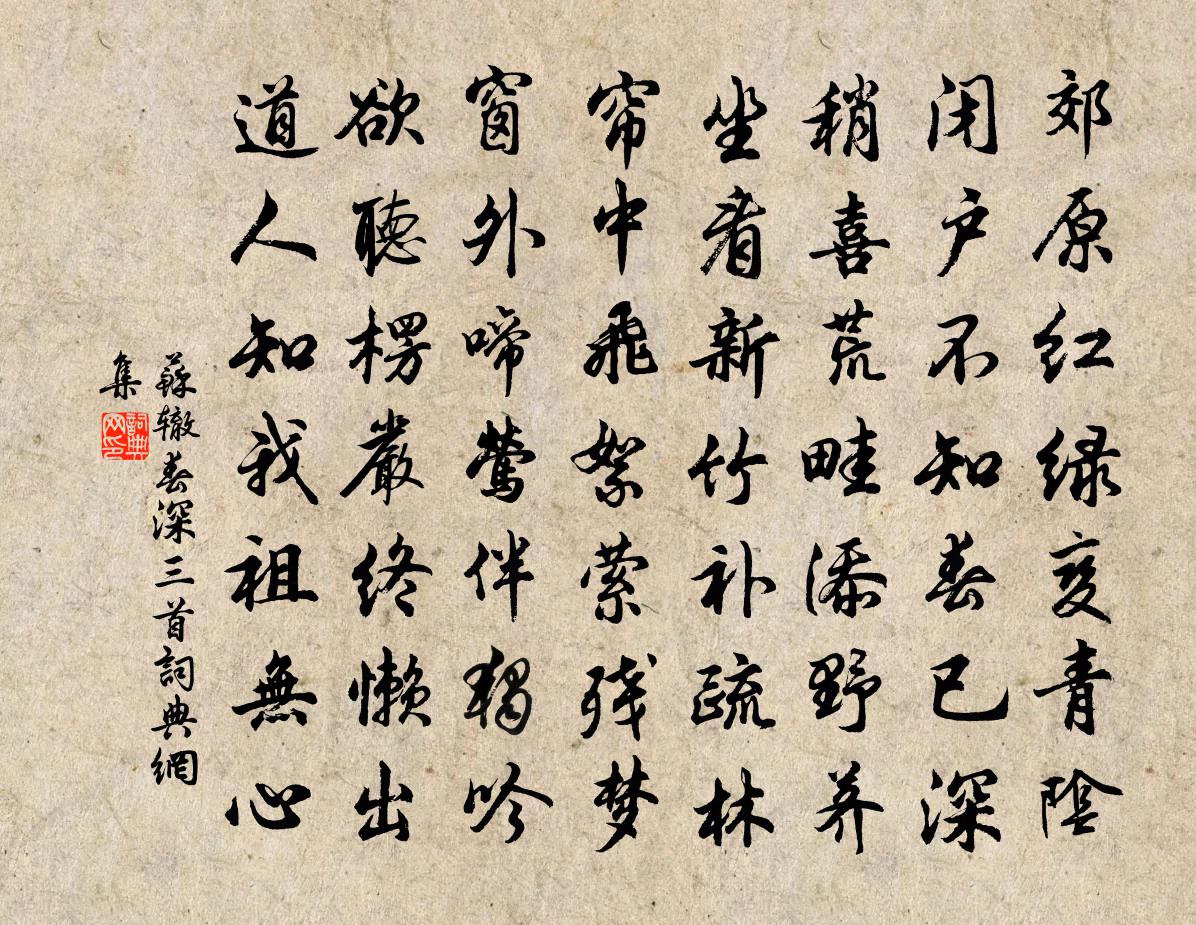 郊原红绿变青阴
闭户不知春已深
稍喜荒畦添野荠
坐看新竹补疏林
帘中飛絮萦残梦
窗外啼莺伴独吟
欲聽楞嚴终懒出
道人知我祖無心
蘇辙春深三首詞典網
集
詞典
网印